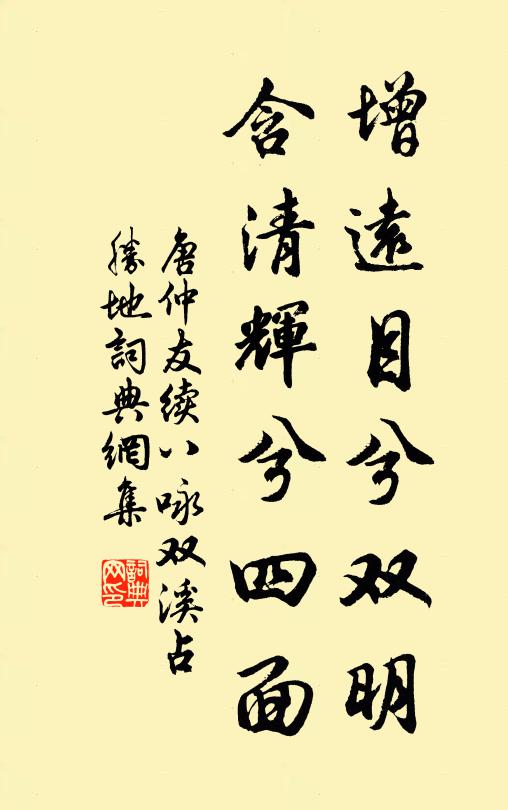 增遠目兮双明
含清輝兮四面
唐仲友续八咏双溪占
勝地詞典網集
詞典网印